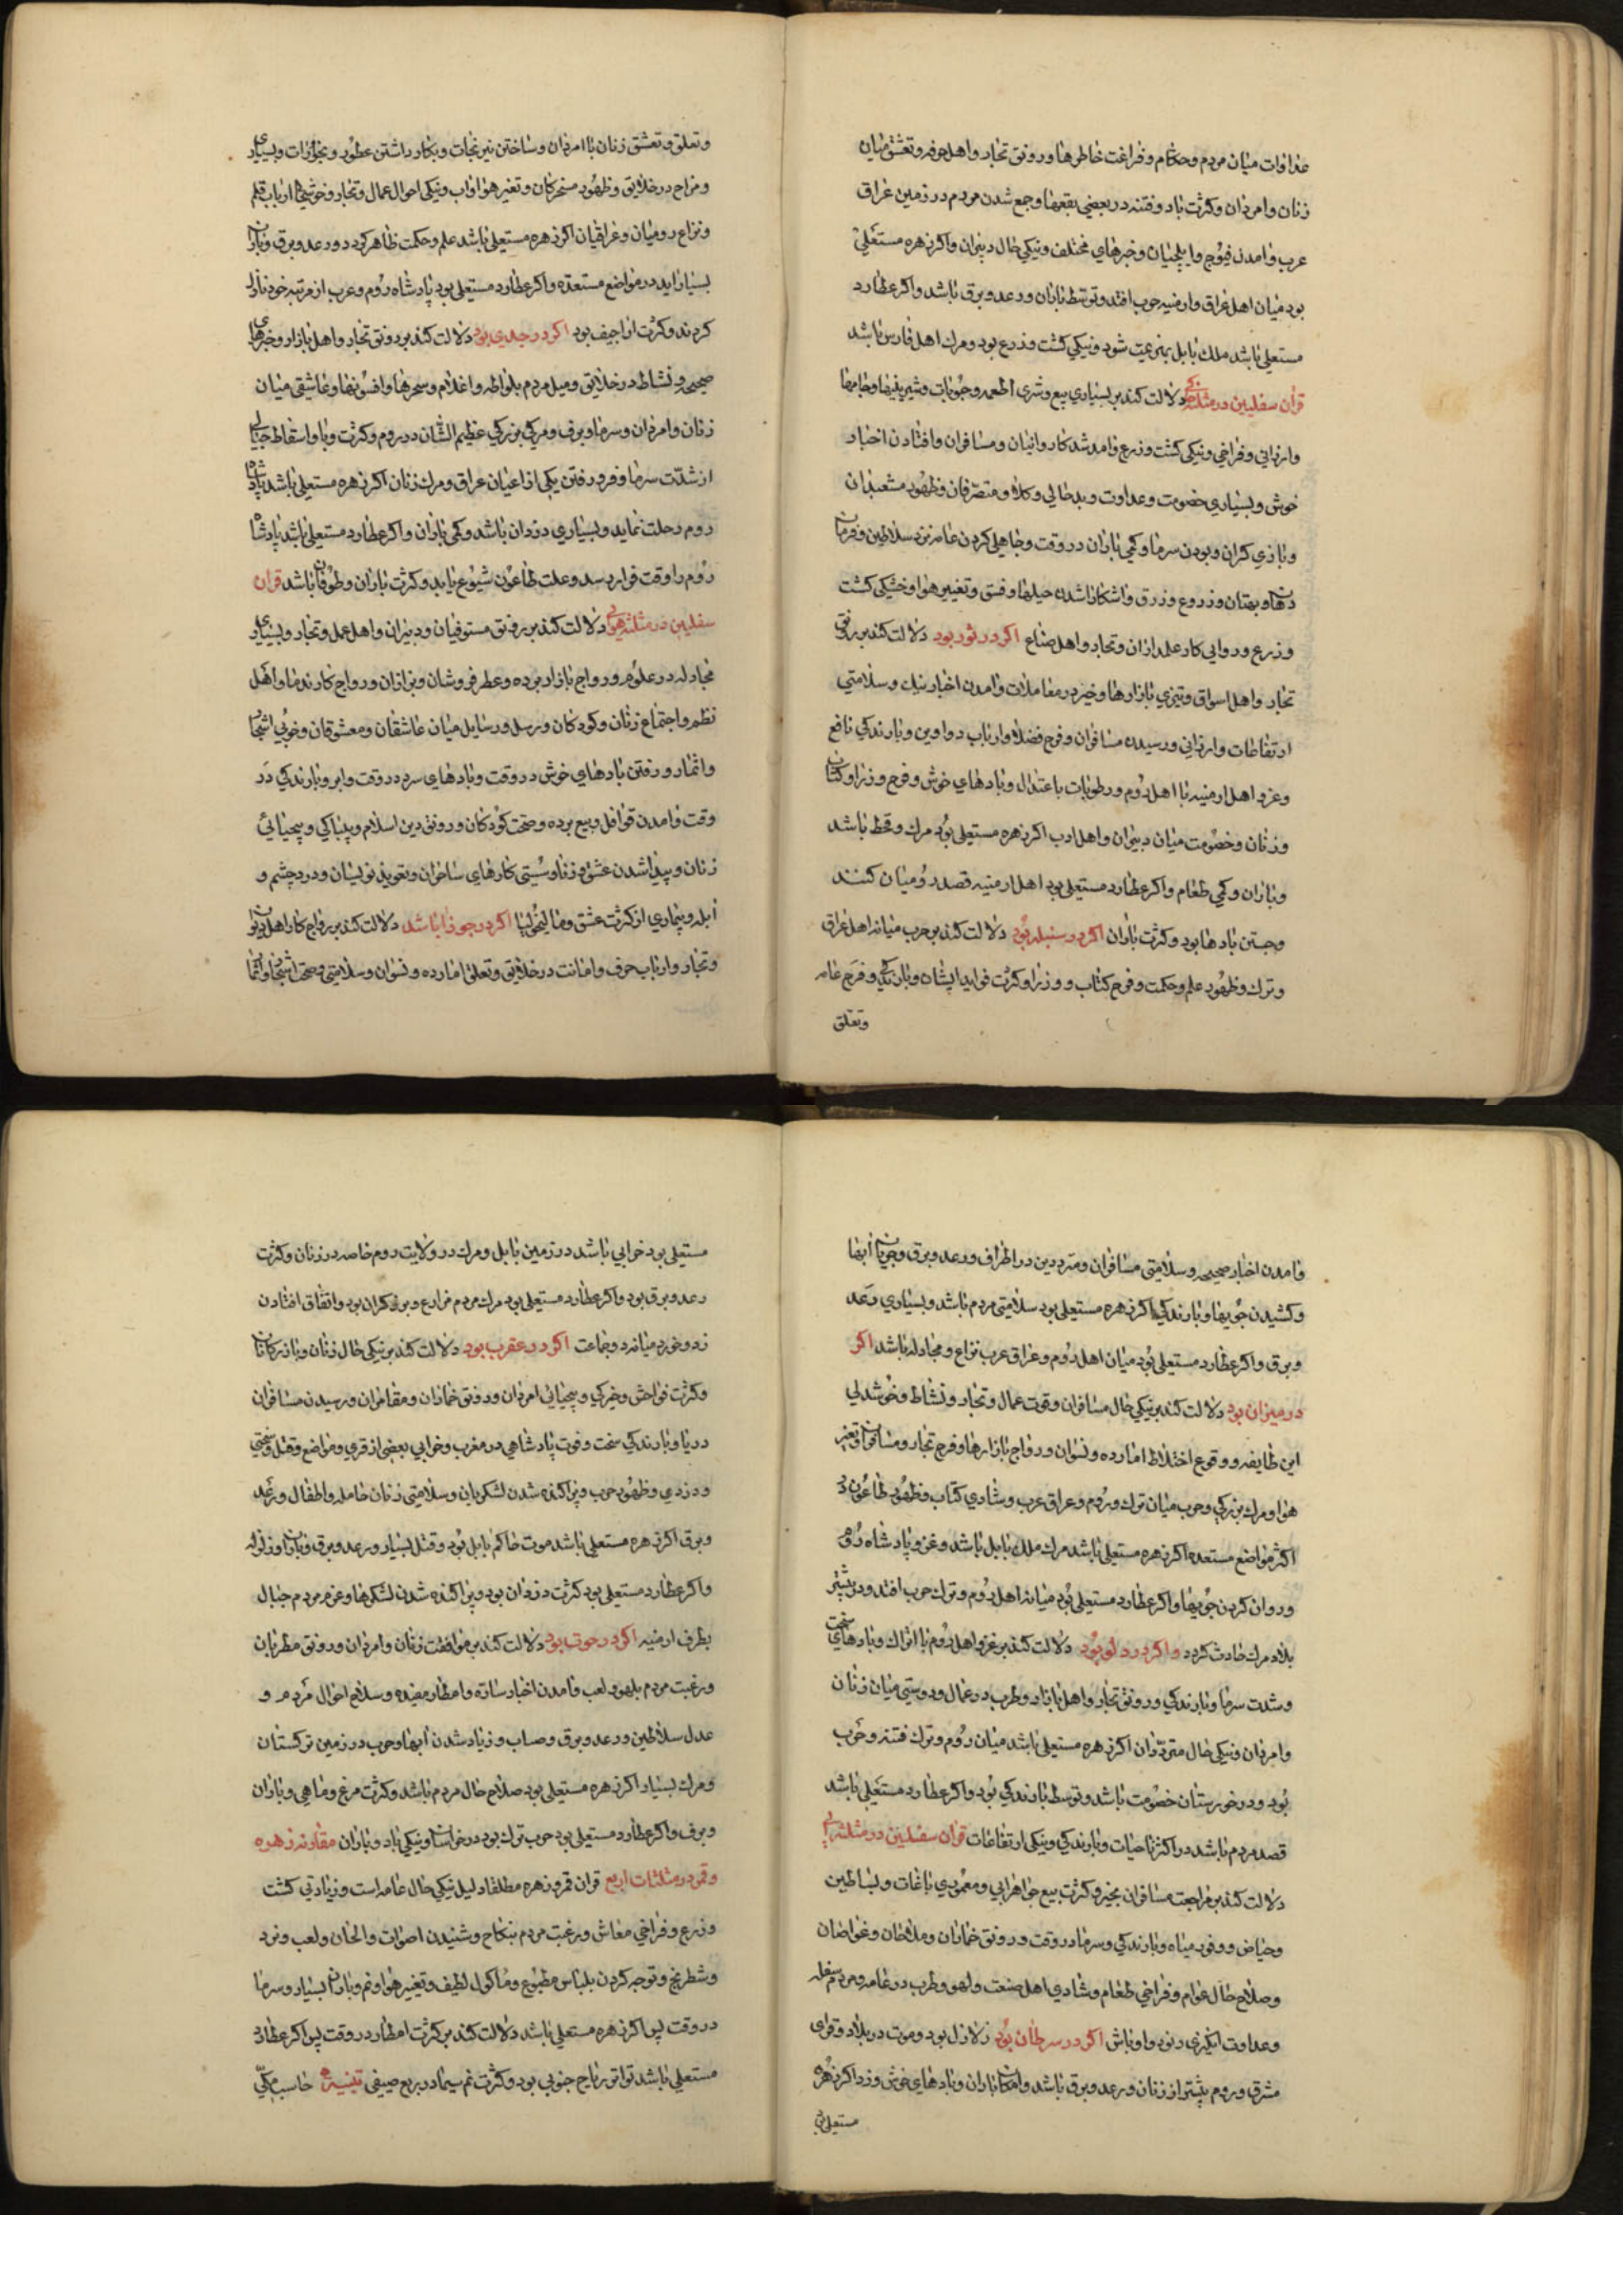 عداوات میان مردم و حکام و فراغت خاطرها و رونق تجار و اهل حرفه و تعشق میان
زنان و امردان و کثرت باد و فتنه در بعضی بقعها و جمع شدن مردم در زمین عراق
عرب و امدن فیوج و ایلچیان و خبرهای مختلف و نیکی حال دبیران و اکر زهره مستعلی
بود میان اهل عراق و ارمنیه حرب افتد و توسط باران و رعد و برق باشد و اکر عطارد
مستعلی باشد ملک بابل بهزیمت شود و نیکی کشت و زرع بود و مرک اهل فارس باشد
قران سفلیین در مثلثه خاکی دلالت کند بر بسیاری بیع و شری اطعمه و حبوبات و شیرینیها و جامها
و ارزانی و فراخی و نیکی کشت و زرع و امد شد کاروانیان و مسافران و افتادن اخبار
خوش و بسیاری خصومت و عداوت و بدحالی وکلا و متصرفان و ظهور مشعبدان
و بازی کران و بودن سرما و کمی باران در وقت و جاهلی کردن عامه نزد سلاطین و فرمان
دهان و بهتان و دروغ و زرق و اشکارا شدن حیلها و فسق و تغییر هوا و خشکی کشت
و زرع و روایی کار عملداران و تجار و اهل صناع اکر در ثور بود دلالت کند بر رونق
تجار و اهل اسواق و تیزی بازارها و خیر در معاملات و امدن اخبار نیک و سلامتی
ارتفاعات و ارزانی و رسیدن مسافران و فرح فضلا و ارباب دواوین و بارندکی نافع
و غزو اهل ارمنیه با اهل روم و رطوبات باعتدال و بادهای خوش و فرح وزرا و کتاب
و زنان و خصومت میان دبیران و اهل ادب اکر زهره مستعلی بود مرک و قحط باشد
و باران و کمی طعام و اکر عطارد مستعلی بود اهل ارمنیه قصد رومیان کنند
و جستن بادها بود و کثرت باران اکر در سنبله بود دلالت کند بر حرب میانه اهل عراق
و ترک و ظهور علم و حکمت و فرح کتاب و وزرا و کثرت فواید ایشان و بارندکی و فرح عامه
وتعلق
و تعلق و تعشق زنان با امردان و ساختن نیرنجات و بکار داشتن عطور و بخورات و بسیاری
و مزاح در خلایق و ظهور مسخرکان و تغیر هوا و اب و نیکی احوال عمال و تجار و خوشیها ارباب قلم
و نزاع رومیان و عراقیان اکر زهره مستعلی باشد علم و حکمت ظاهر کردد و رعد و برق و باران
بسیار اید در مواضع مستعده و اکر عطارد مستعلی بود پادشاه روم و عرب از مرتبه خود نازل
کردند و کثرت اراجیف بود اکر در جدی بود دلالت کند بر رونق تجار و اهل بازار و خبرهای
صحیح و نشاط در خلایق و میل مردم بلواطه و اغلام و سحرها و افسونها و عاشقی میان
زنان و امردان و سرما و برف و مرکی بزرکی عظیم الشان در روم و کثرت وبا و اسقاط حبالی
از شدت سرما و فرو رفتن یکی از اعیان عراق و مرک زنان اکر زهره مستعلی باشد پادشاه
روم رحلت نماید و بسیاری دزدان باشد و کمی باران و اکر عطارد مستعلی باشد پادشاه
روم را وقت فرا رسد و علت طاعون شیوع یابد و کثرت باران و طوفان باشد قران
سفلیین در مثلثه هوایی دلالت کند بر رونق مستوفیان و دبیران و اهل عمل و تجار و بسیاری
مجادله در علوم و رواج بازار برده و عطر فروشان و بزازان و رواج کار ندما و اهل
نظم و اجتماع زنان و کودکان و رسل و رسایل میان عاشقان و معشوقان و خوبی اشجار
و اثمار و رفتن بادهای خوش در وقت و بادهای سرد در وقت و ابر و بارندکی در
وقت و امدن قوافل و بیع برده و صحت کودکان و رونق دین اسلام و بیباکی و بیحیائی
زنان و پیدا شدن عشق و زنا و سستی کارهای ساحران و تعویذ نویسان و درد چشم و
ابله و بیماری از کثرت عشق و مالیخولیا اکر در جوزا باشد دلالت کند بر رواج کار اهل دیوان
و تجار و ارباب حرف و امانت در خلایق و تعلق امارده و نسوان و سلامتی و صحت اشجار و اثمار
و امدن اخبار صحیحه و سلامتی مسافران و مترددین در اطراف و رعد و برق و جریان ابها
و کشیدن جویها و بارندکی اکر زهره مستعلی بود سلامتی مردم باشد و بسیاری رعد
و برق و اکر عطارد مستعلی بود میان اهل روم و عراق عرب نزاع و مجادله باشد اکر
در میزان بود دلالت کند بر نیکی حال مسافران و قوت عمال و تجار و نشاط و خوشدلی
این طایفه و وقوع اختلاط امارده و نسوان و رواج بازارها و فرح تجار و مسافران و تغیر
هوا و مرک بزرکی و حرب میان ترک و روم و عراق عرب و شادی کتاب و ظهور طاعون در
اکثر مواضع مستعده اکر زهره مستعلی باشد مرک ملک بابل باشد و غزو پادشاه روم
و روان کردن جویها و اکر عطارد مستعلی بود میانه اهل روم و ترک حرب افتد و در بیشتر
بلاد مرک حادث کردد و اکر در دلو بود دلالت کند بر غزو اهل روم با اتراک و بادهای سخت
و شدت سرما و بارندکی و رونق تجار و اهل بازار و طرب در عمال و دوستی میان زنان
و امردان و نیکی حال مترددان اکر زهره مستعلی باشد میان روم و ترک فتنه و حرب
بود و در خورستان خصومت باشد و توسط بارندکی بود و اکر عطارد مستعلی باشد
قصد مردم باشد در اکثر ناحیات و بارندکی و نیکی ارتفاعات قران سفلیین در مثلثه ابی
دلالت کند بر مراجعت مسافران بخیر و کثرت بیع جواهر ابی و معموری باغات و بساطین
و حیاض و وفور میاه و بارندکی و سرما در وقت و رونق خماران و ملاحان و غواصان
و صلاح حال عوام و فراخی طعام و شادی اهل صنعت و لهو و طرب در عامه و مردم سفله
و عداوت انکیزی رنود و اوباش اکر در سرطان بود زلازل بود و موت در بلاد و قرای
مشرق و روم بیشتر از زنان و رعد و برق باشد و امکان باران و بادهای خوش وزد اکر زهره
مستعلی
مستعلی بود خرابی باشد در زمین بابل و مرک در ولایت روم خاصه در زنان و کثرت
رعد و برق بود و اکر عطارد مستعلی بود مرک مردم مزارع و برزکران بود و اتفاق افتادن
زد و خورد میانه دو جماعت اکر در عقرب بود دلالت کند بر نیکی حال زنان و بازرکانان
و کثرت فواحش و خیرکی و بیحیائی امردان و رونق خماران و مقامران و رسیدن مسافران
دریا و بارندکی سخت و فوت پادشاهی در مغرب و خرابی بعضی از قری و مواضع و قتل و سختی
و دزدی و ظهور حرب و پراکنده شدن لشکریان و سلامتی زنان حامله و اطفال و رعد
و برق اکر زهره مستعلی باشد موت حاکم بابل بود و قتل بسیار و رعد و برق و باران و زلزله
و اکر عطارد مستعلی بود کثرت دزدان بود و پراکنده شدن لشکرها و عزم مردم جبال
بطرف ارمنیه اکر در حوت بود دلالت کند بر موافقت زنان و امردان و رونق مطربان
و رغبت مردم بلهو و لعب و امدن اخبار ساره و امطار مفیده و سلاح احوال مردم و
عدل سلاطین و رعد و برق و صباب و زیاد شدن ابها و حرب در زمین ترکستان
و مرک بسیار اکر زهره مستعلی بود صلاح حال مردم باشد و کثرت مرغ و ماهی و باران
و برف و اکر عطارد مستعلی بود حرب ترک بود در خراسان و نیکی باد و باران مقارنه زهره
و قمر در مثلثات اربع قران قمر و زهره مطلقا دلیل نیکی حال عامه است و زیادتی کشت
و زرع و فراخی معاش و رغبت مردم بنکاح و شنیدن اصوات و الحان و لعب و نرد
و شطرنج و توجه کردن بلباس مطبوع و ماکول لطیف و تغییر هوا و نم و باران بسیار و سرما
در وقت پس اکر زهره مستعلی باشد دلالت کند بر کثرت امطار در وقت پس اکر عطارد
مستعلی باشد تواتر ریاح جنوبی بود و کثرت نم سیما در ربع صیفی حاسب مکی